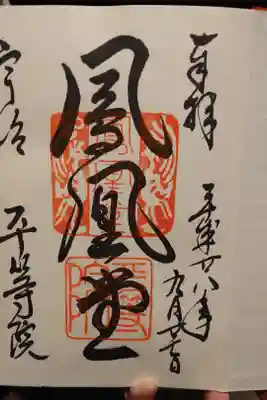 奉拝
平成廿八年
九月
鳳凰堂
宇治 平等院